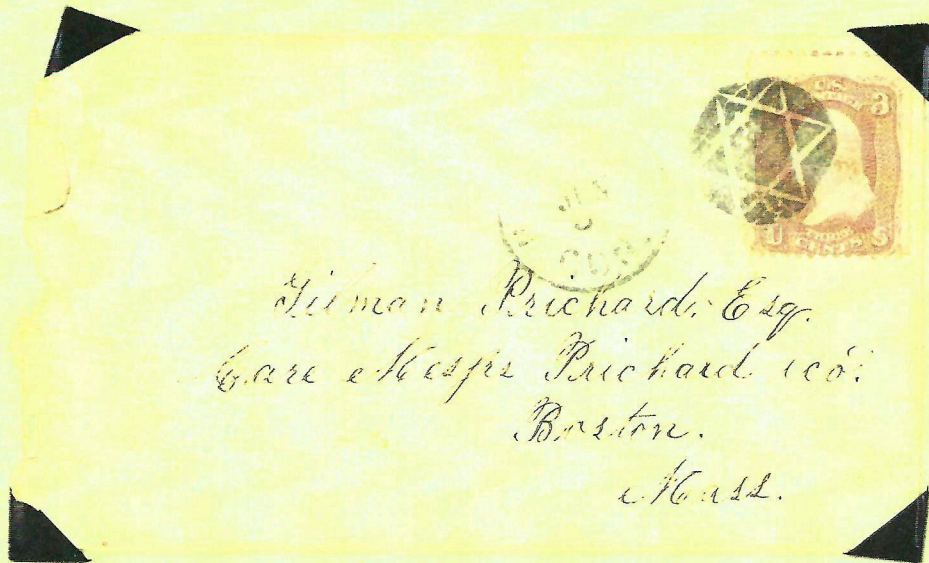 3
U CENTS S
JUN
CON
Tilman Prichard, Esq.
Care Messrs Prichard & Co.
Boston.
Mass.